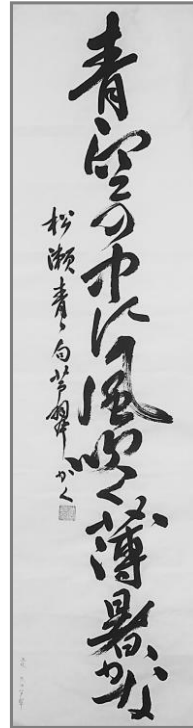 青空の中に風吹く薄暑かな
松瀬青々句 芒翠かく